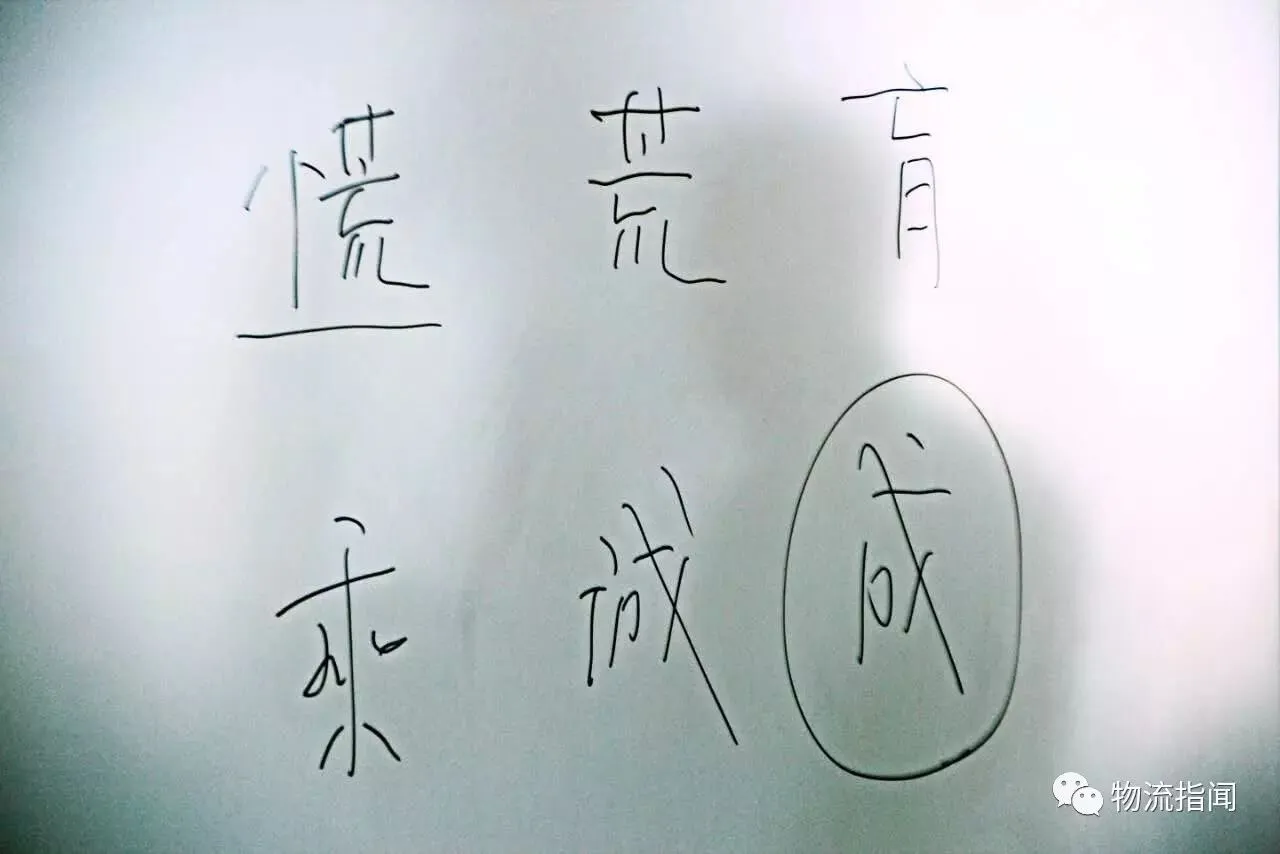 慌 荒 肓
乘 诚 成
物流指闻